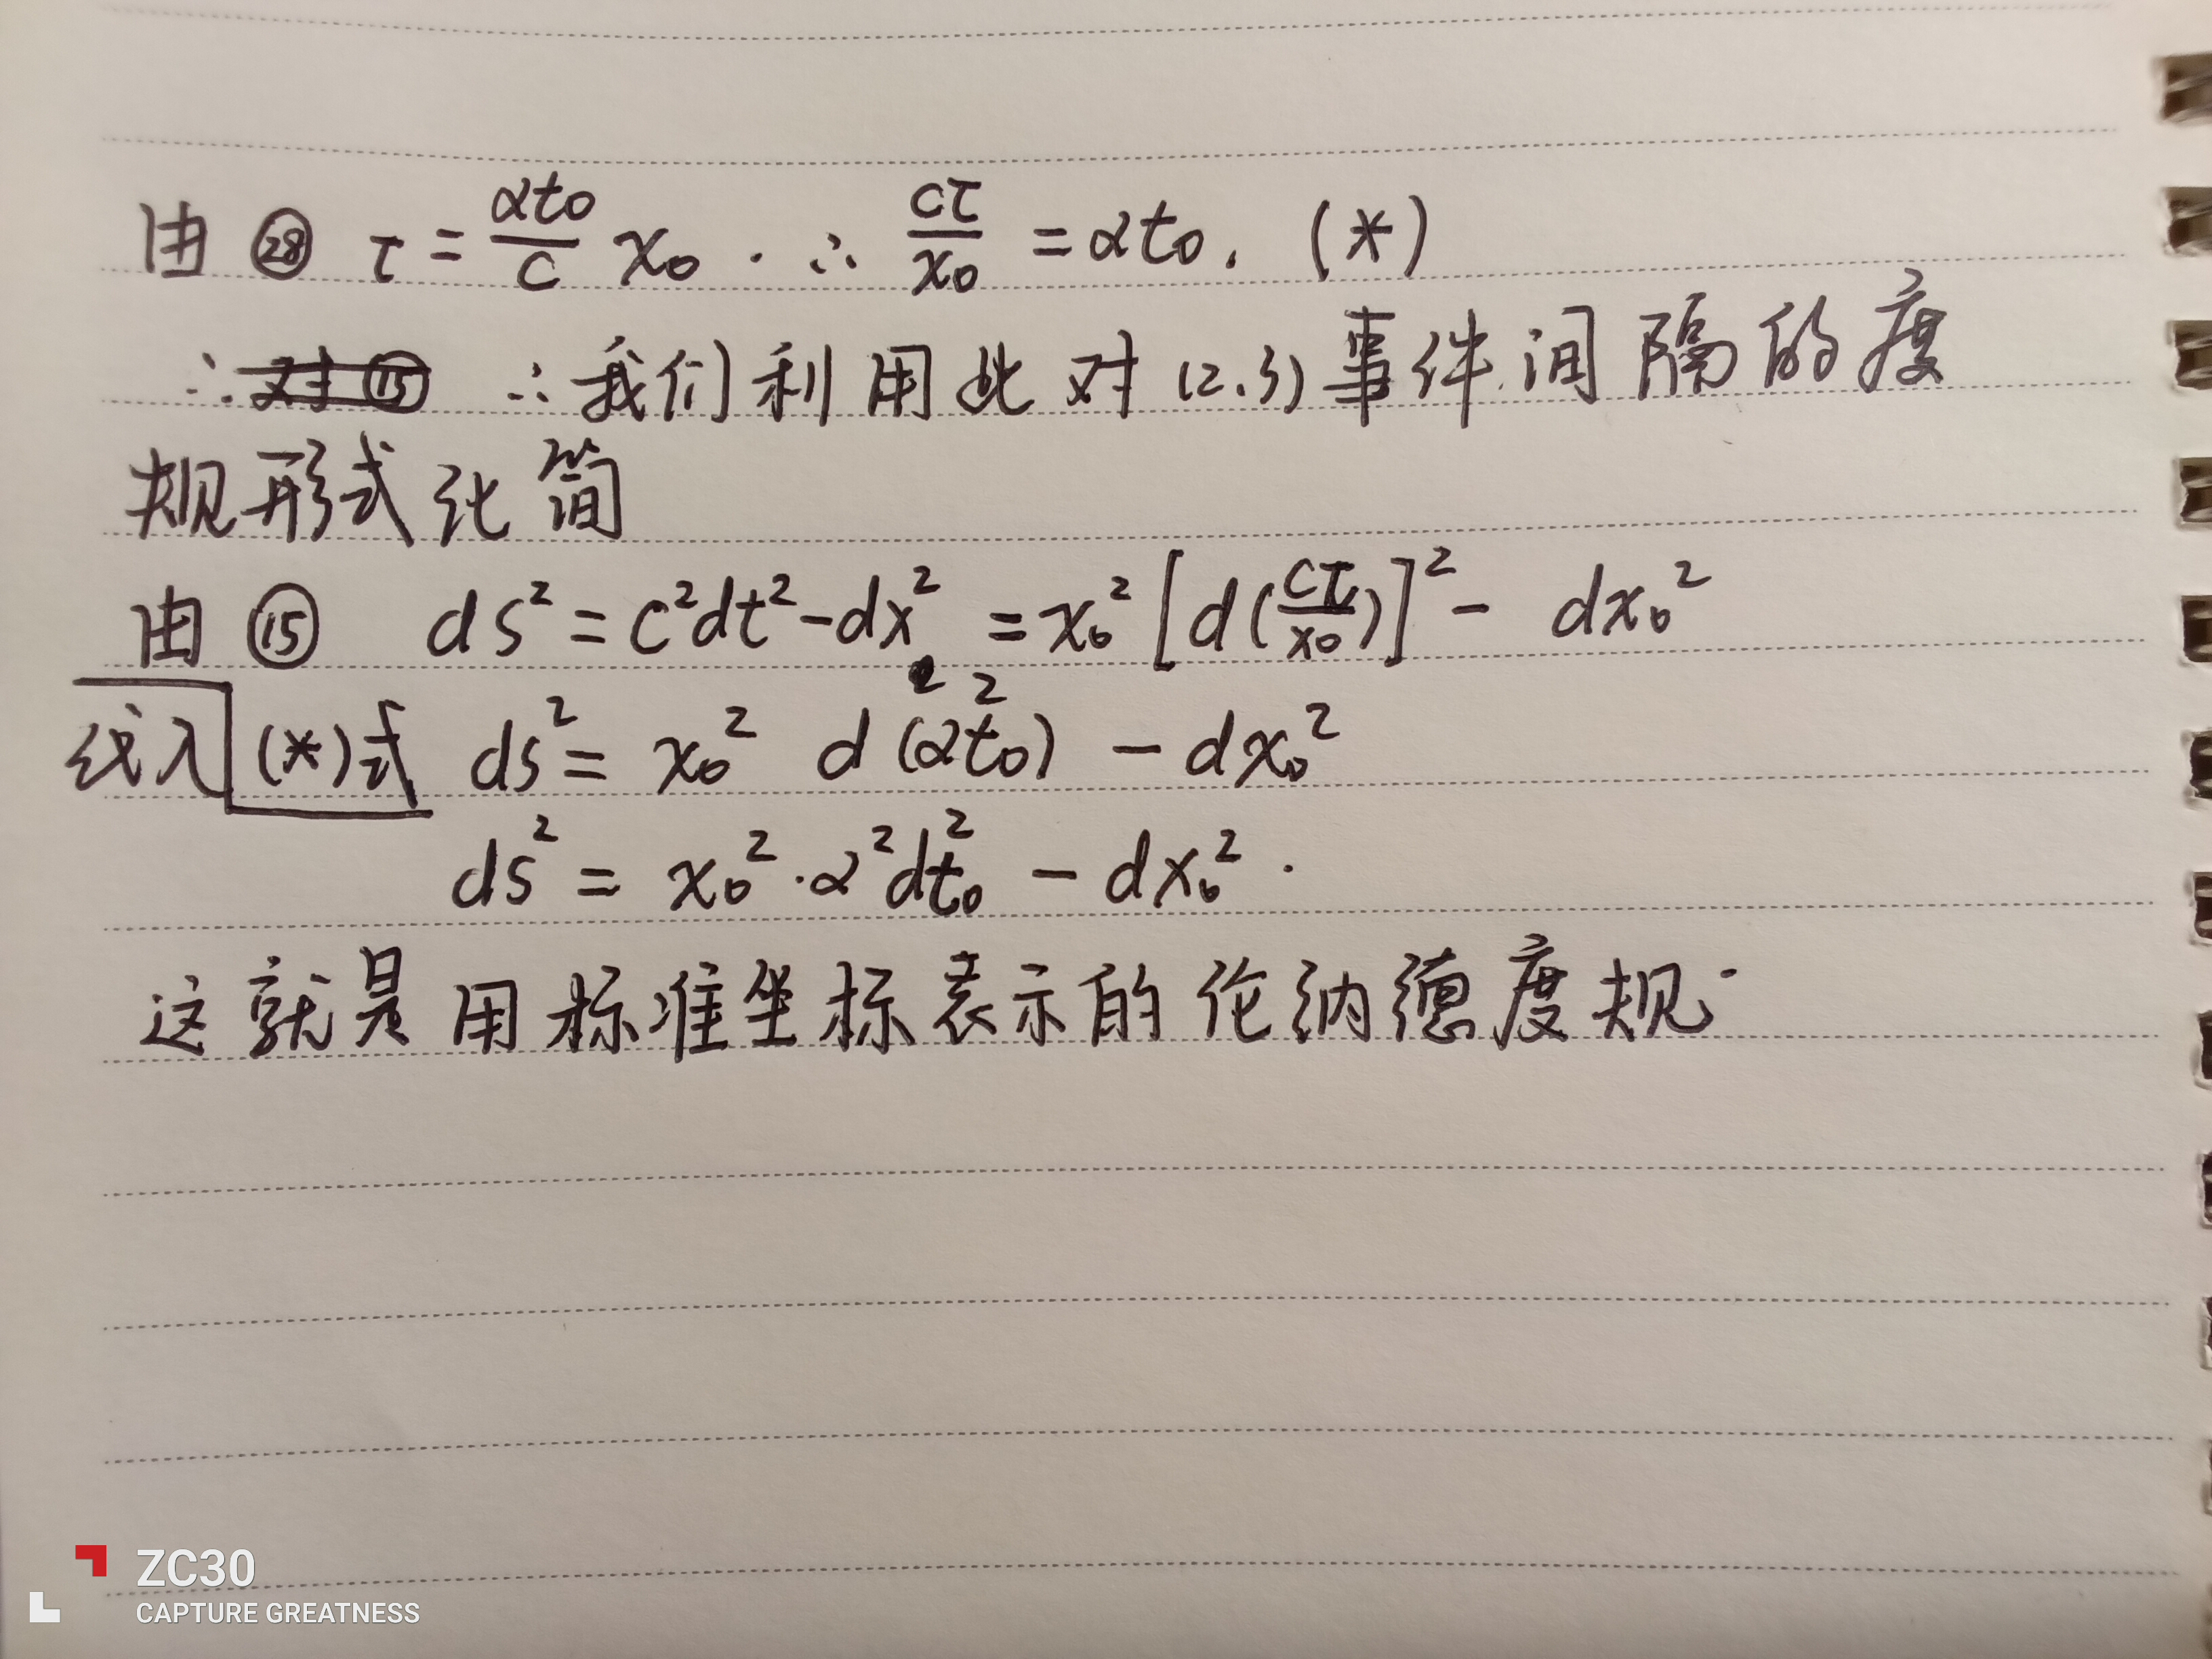 由 ㉘ τ = αt₀/c x₀ . ∴ cτ/x₀ = αt₀. (*)
∴ 对⑮ ∴我们利用此对(2.3)事件间隔的度
规形式化简
由 ⑮ ds² = c²dt² - dx² = x₀² [d(cτ/x₀)]² - dx₀²
代入 (*)式 ds² = x₀² d(α²t₀²) - dx₀²
ds² = x₀²·α²dt₀² - dx₀² .
这就是用标准坐标表示的伦纳德度规.
ZC30
CAPTURE GREATNESS